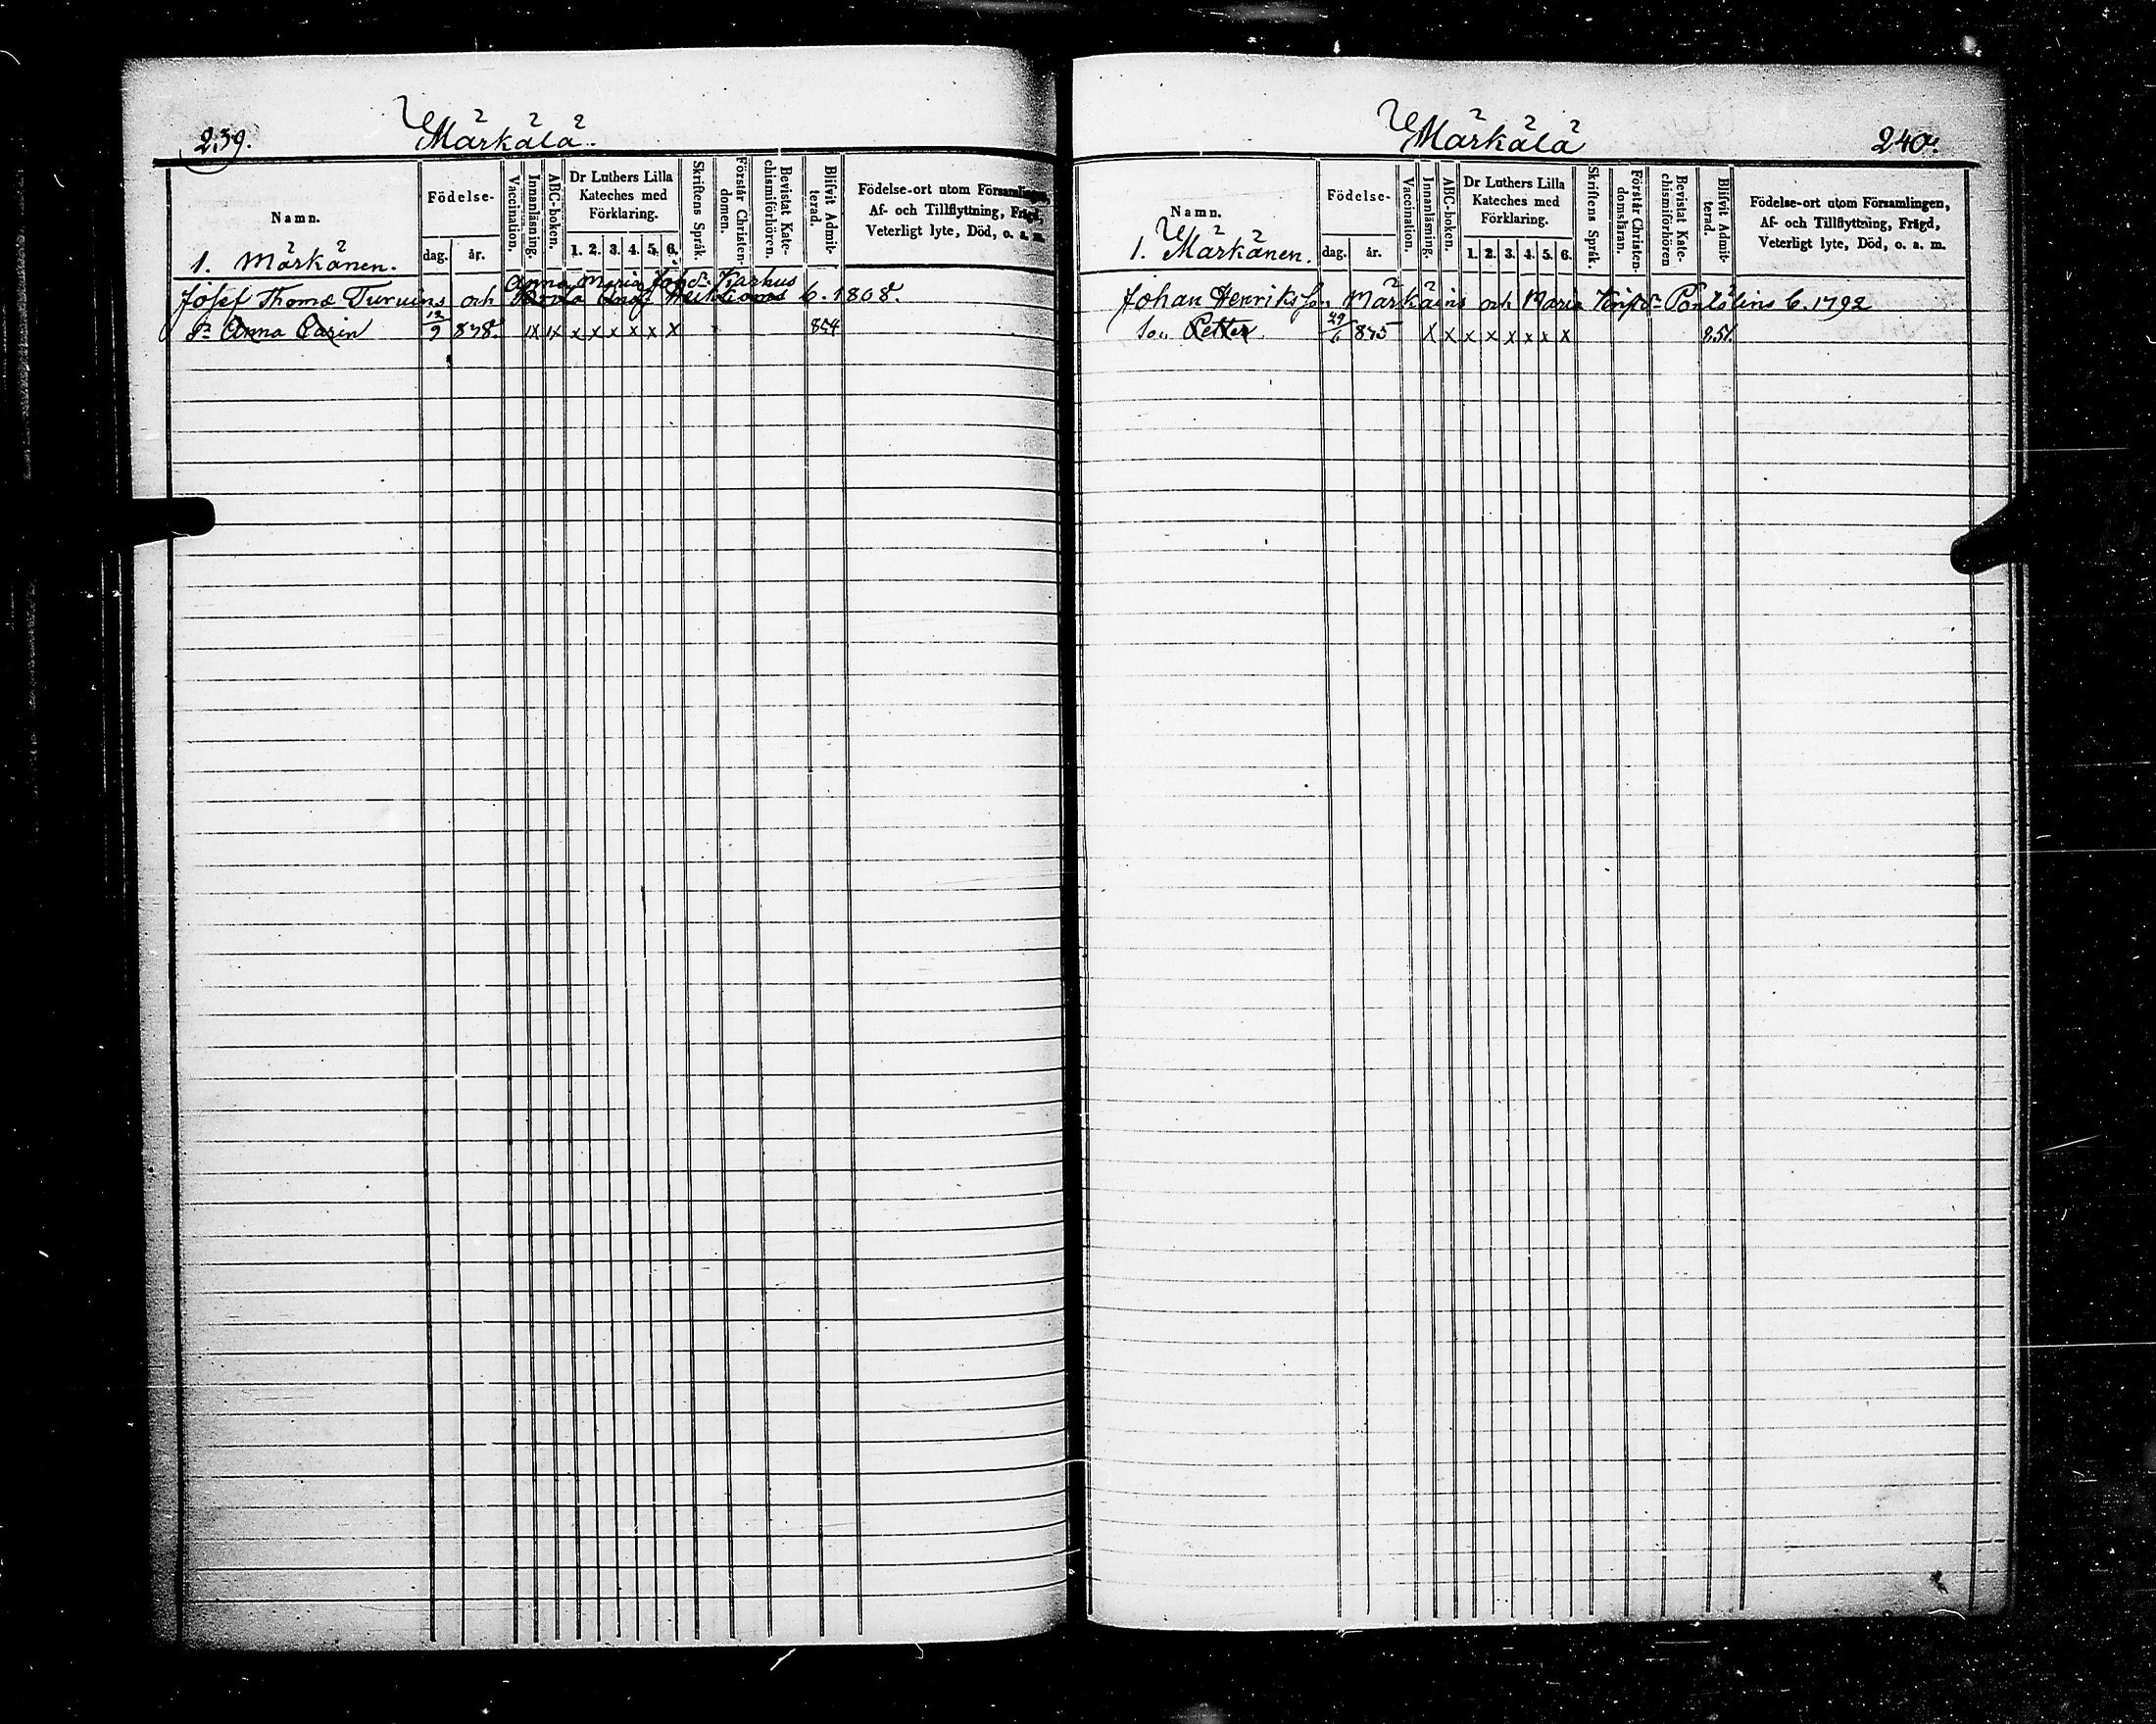 239.
Märkälä.
Namn.
Födelse-
dag.
år.
Vaccination.
Innanläsning.
ABC-boken.
Dr Luthers Lilla
Kateches med
Förklaring.
1. 2. 3. 4. 5. 6.
Skriftens Språk.
Förstår Christen-
domen.
Bevistat Kate-
chismiförhören.
Blifvit Admit-
terad.
Födelse-ort utom Församlingen,
Af- och Tillflyttning, Frägd,
Veterligt lyte, Död, o. a. m.
1. Märkänen.
Anna Maria Joh dr Karhus
Josef Thomæ Turuins och 6. 1808.
Dr Anna Carin 12/9 838. x x x x x x x x 854
Märkälä
240.
Namn.
Födelse-
dag.
år.
Vaccination.
Innanläsning.
ABC-boken.
Dr Luthers Lilla
Kateches med
Förklaring.
1. 2. 3. 4. 5. 6.
Skriftens Språk.
Förstår Christen-
domsläran.
Bevistat Kate-
chismiförhören
Blifvit Admit-
terad.
Födelse-ort utom Församlingen,
Af- och Tillflyttning, Frägd,
Veterligt lyte, Död, o. a. m.
1. Märkänen.
Johan Henriksson Märkäins och Maria 6. 1792
Son Petter 835 x x x x x x x x 851.